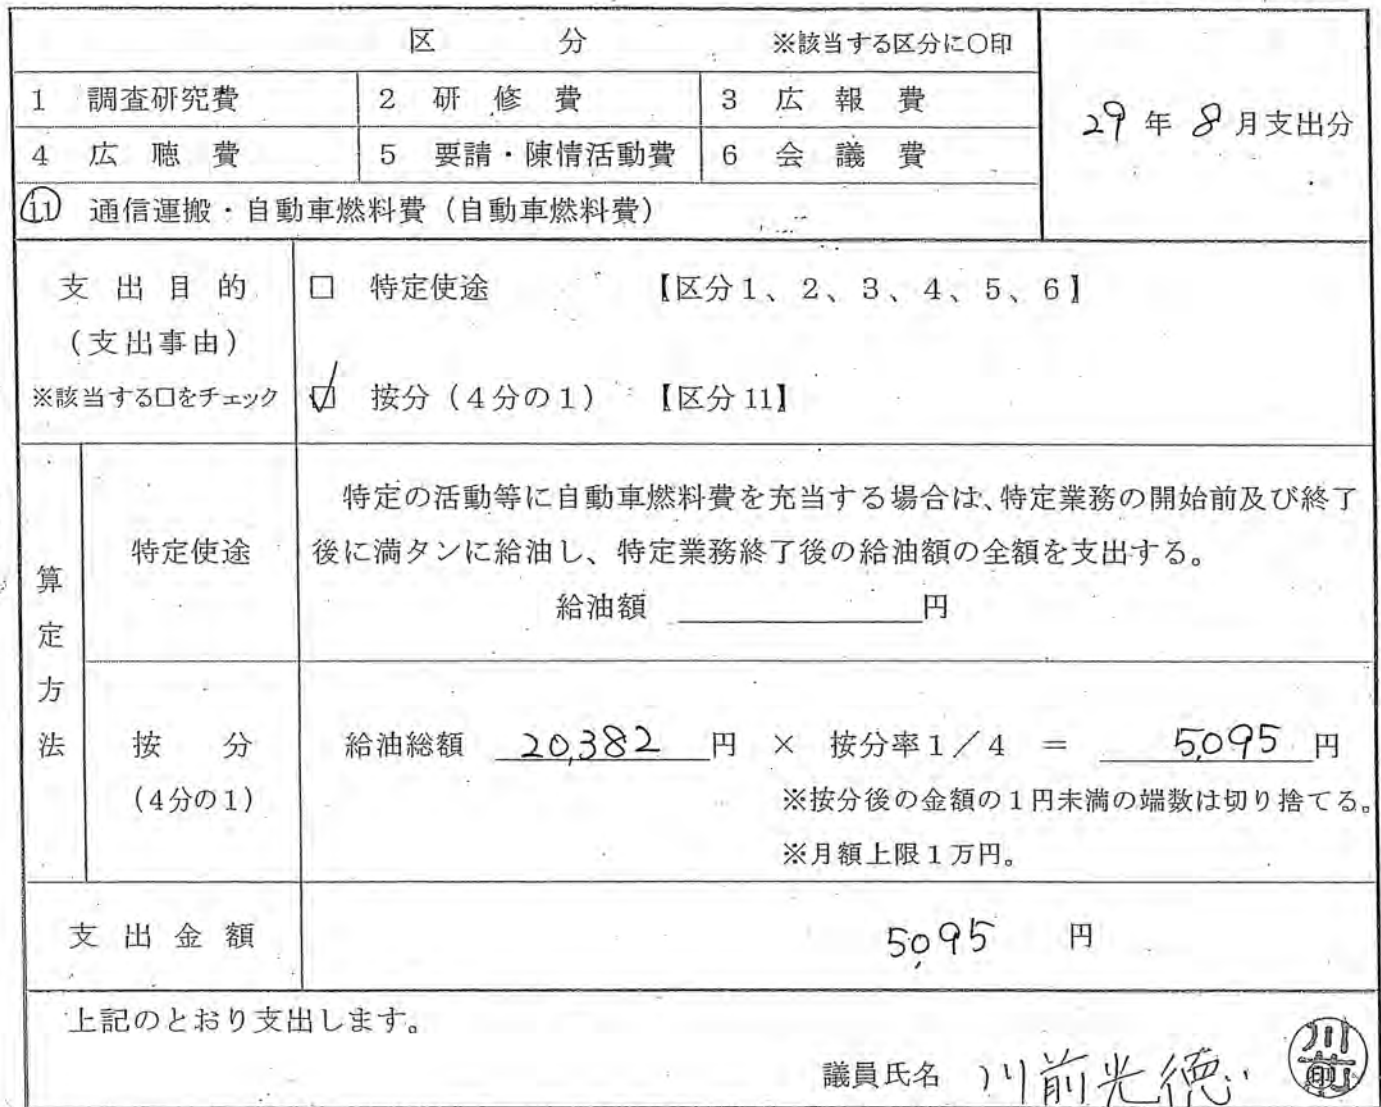 区　　分　　※該当する区分に〇印
1　調査研究費　2　研修費　3　広報費
29年8月支出分
4　広聴費　5　要請・陳情活動費　6　会議費
11　通信運搬・自動車燃料費（自動車燃料費）
支出目的　□　特定使途　【区分1、2、3、4、5、6】
（支出事由）
※該当する口をチェック　☑　按分（4分の1）　【区分11】
算定方法
特定使途
特定の活動等に自動車燃料費を充当する場合は、特定業務の開始前及び終了
後に満タンに給油し、特定業務終了後の給油額の全額を支出する。
給油額　　　円
按分　給油総額　20,382円　×　按分率1／4　＝　5,095円
（4分の1）　※按分後の金額の1円未満の端数は切り捨てる。
※月額上限1万円。
支出金額　5,095　円
上記のとおり支出します。
議員氏名　川前光徳　川前